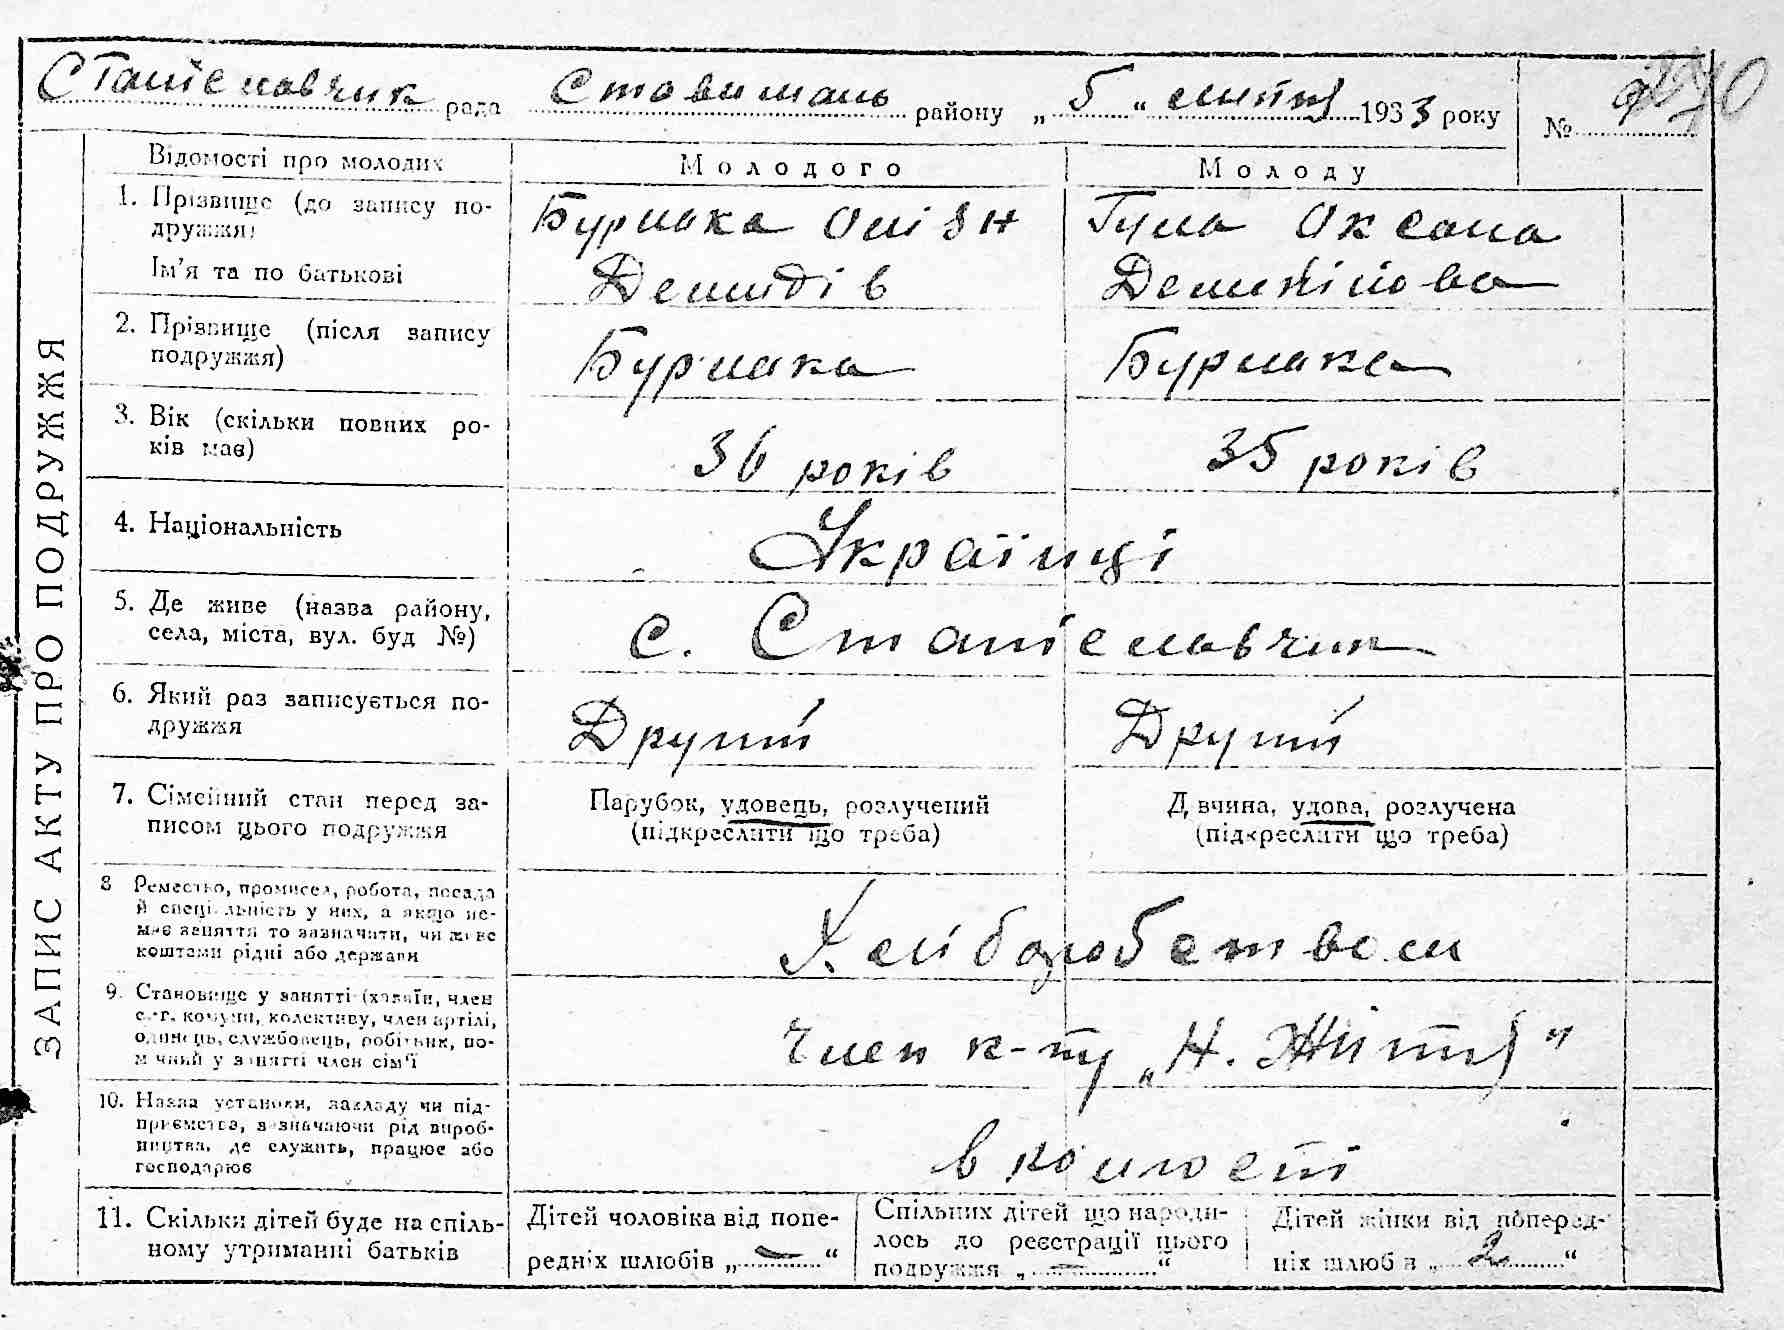 Станіславчик рада Ставищань району „ 5 “ липня 1933 року №
ЗАПИС АКТУ ПРО ПОДРУЖЖЯ
Відомості про молодих
Молодого
Молоду
1. Прізвище (до запису по-
дружжя)
Ім'я та по батькові
Бурлака Оліян
Демидів
Гула Оксана
2. Прізвище (після запису
подружжя)
Бурлака
Бурлака
3. Вік (скільки повних ро-
ків має)
36 років
35 років
4. Національність
Українці
5. Де живе (назва району,
села, міста, вул. буд №)
с. Станіславчик
6. Який раз записується по-
дружжя
Другий
Другий
7. Сімейний стан перед за-
писом цього подружжя
Парубок, удовець, розлучений
(підкреслити що треба)
Дівчина, удова, розлучена
(підкреслити що треба)
8 Ремество, промисел, робота, посада
й спеціальність у них, а якщо не-
має заняття то зазначити, чи живе
коштами рідні або держави
Хліборобством
9. Становище у занятті (хазяїн, член
с.-г. комуни, колективу, член артілі,
одинець, службовець, робітник, по-
мічний у занятті член сім'ї
Член к-ту „Н. Життя“
10. Назва установи, закладу чи під-
приємства, зазначаючи рід вироб-
ництва, де служить, працює або
господарює
в колгоспі
11. Скільки дітей буде на спіль-
ному утриманні батьків
Дітей чоловіка від попе-
редніх шлюбів „ — “
Спільних дітей що народи-
лось до реєстрації цього
подружжя „ — “
Дітей жінки від поперед-
ніх шлюбів „ 2 “